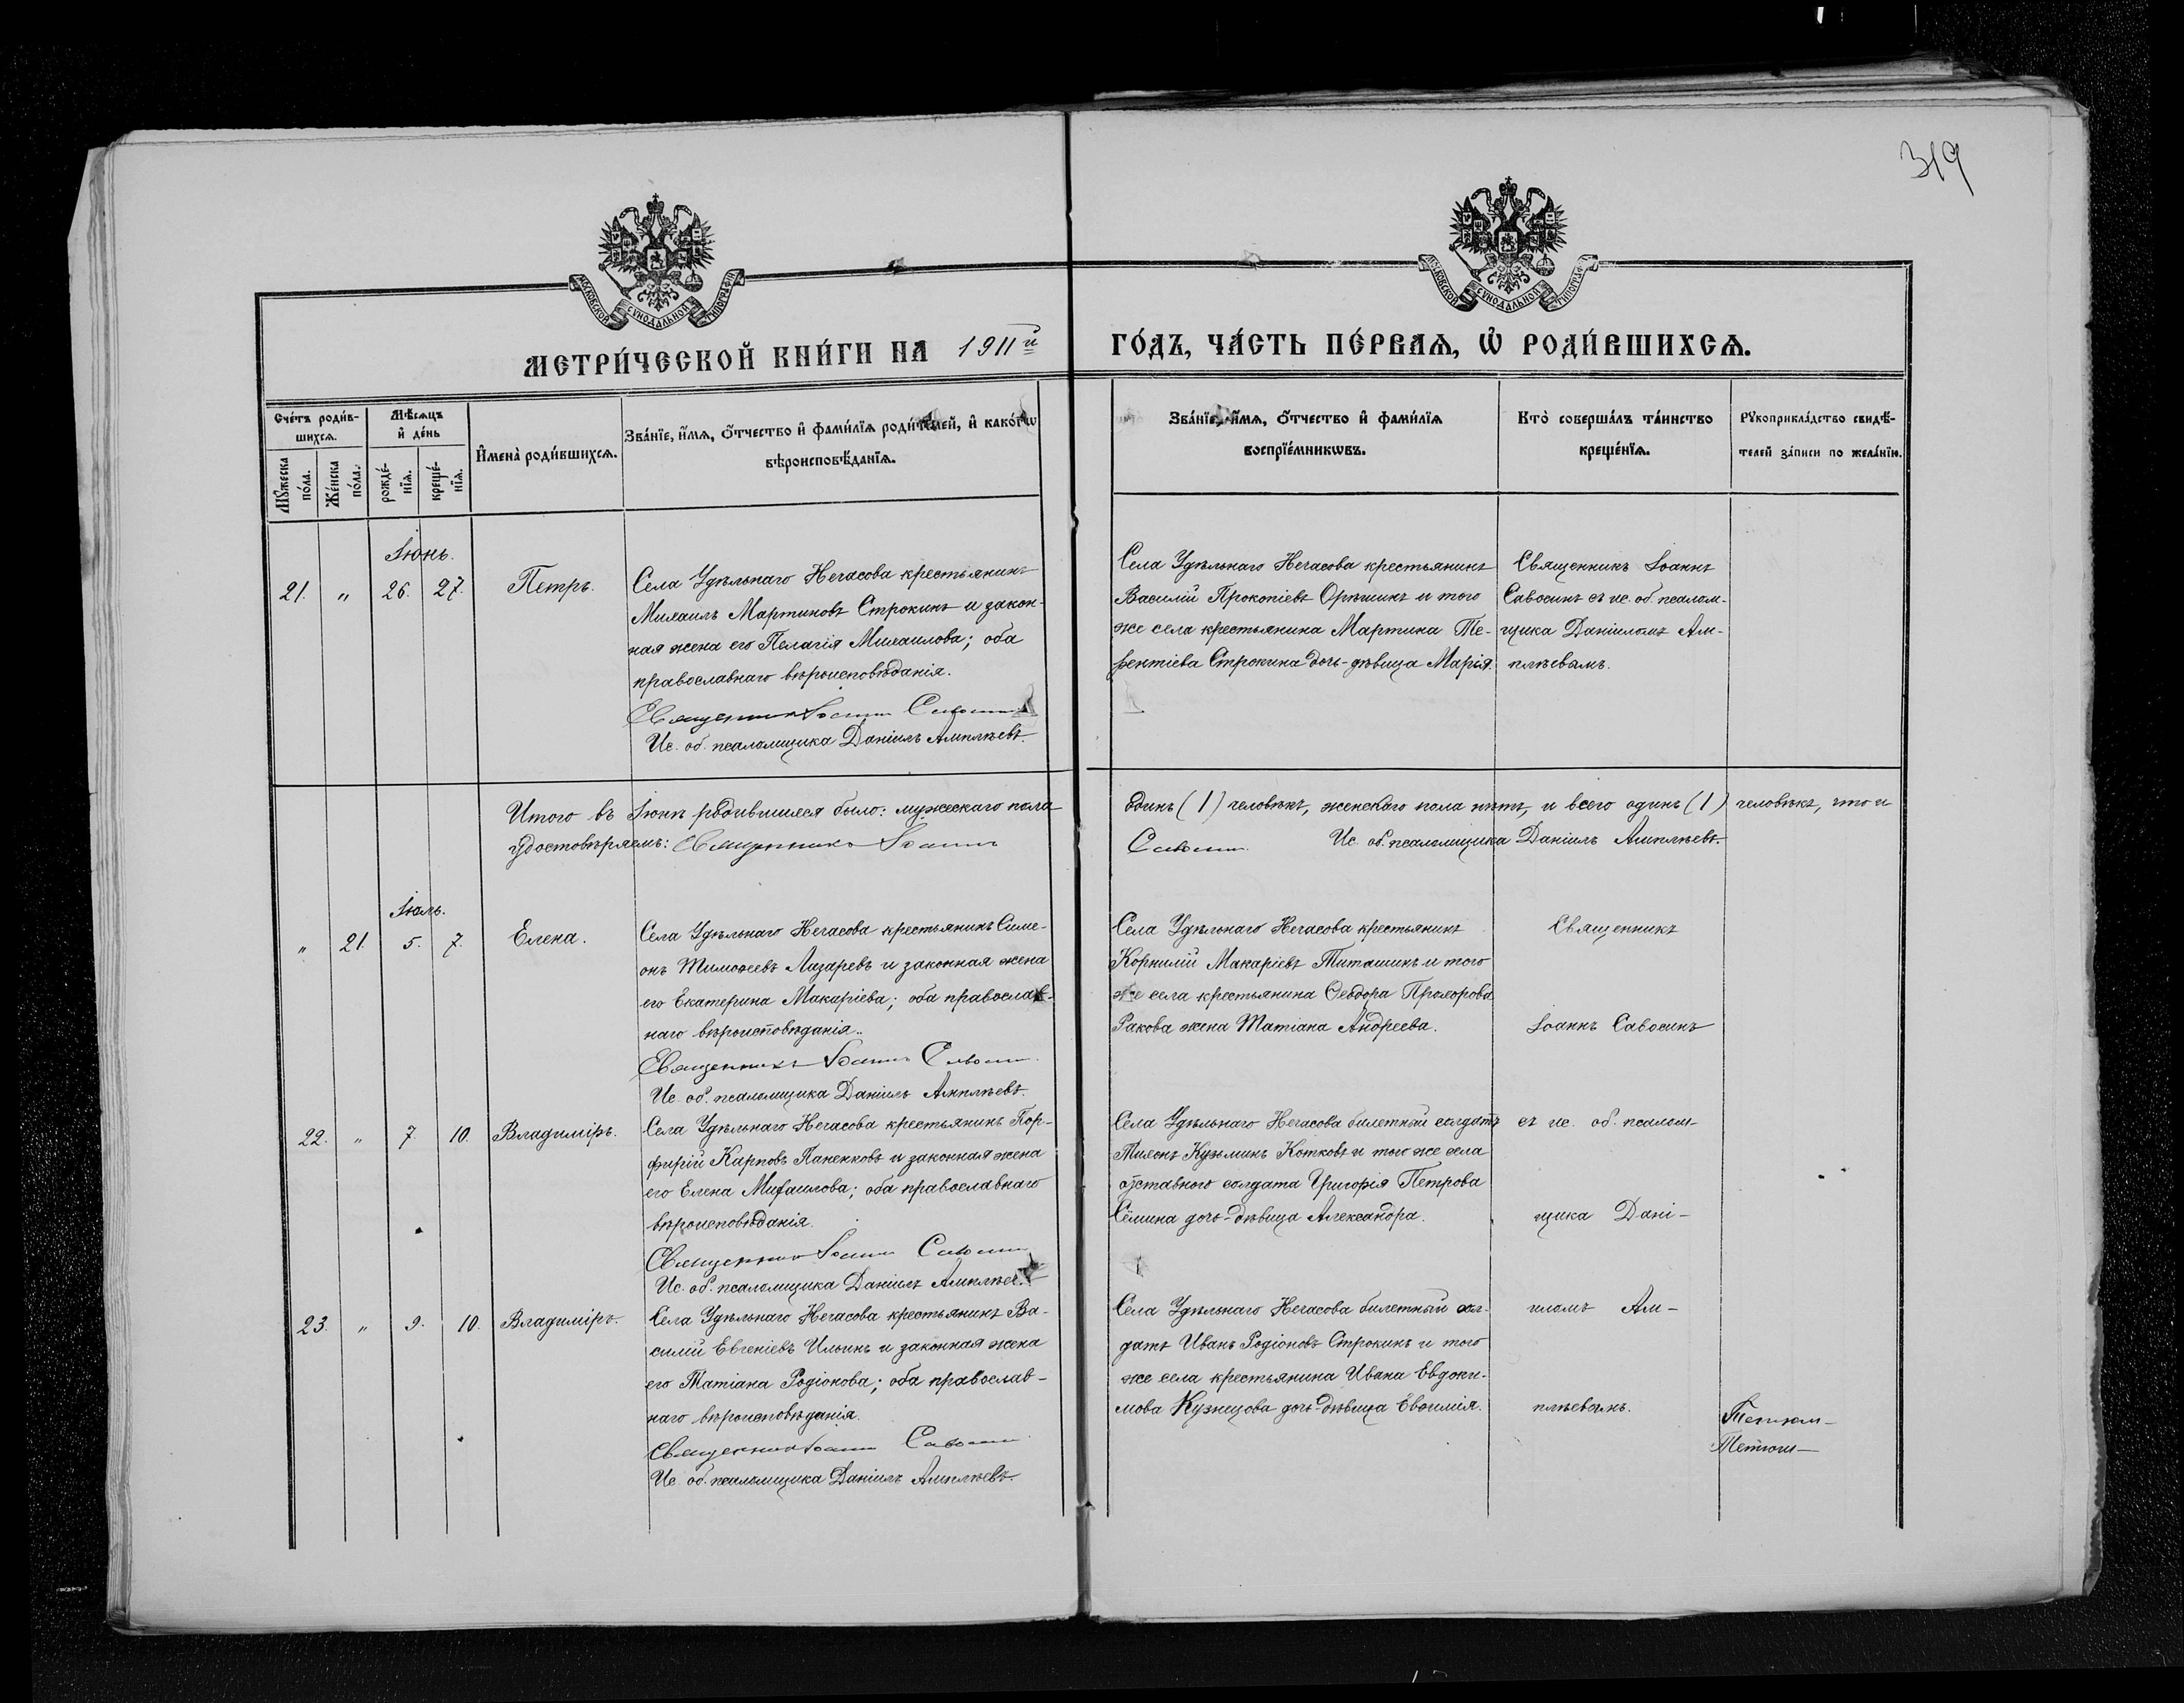 319
МОСКОВСКОЙ СѴНОДАЛЬНОЙ ТИПОГРАФІИ
МОСКОВСКОЙ СѴНОДАЛЬНОЙ ТИПОГРАФІИ
МЕТРИ́ЧЕСКОЙ КНИ́ГИ НА 1911й ГО́ДЪ, ЧА́СТЬ ПЕ́РВАѦ, Ѡ҆ РОДИ́ВШИХСѦ.
Сче́тъ роди́в-
шихсѧ.
Мꙋ́жеска по́ла.
Же́нска по́ла.
Мѣ́сѧцъ
и҆ де́нь
рожде́-
нїѧ.
креще́-
нїѧ.
И҆мена̀ роди́вшихсѧ.
Зва́нїе, и҆́мѧ, ѻ҆́тчество и҆ фами́лїѧ роди́телей, и҆ како́гѡ
вѣроисповѣ́данїѧ.
Зва́нїе, и҆́мѧ, ѻ҆́тчество и҆ фами́лїѧ
воспрїе́мникѡвъ.
Кто̀ соверша́лъ та́инство
креще́нїѧ.
Рꙋкоприкла́дство свидѣ́-
телей за́писи по жела́нїю.
Іюнь.
21. „ 26. 27. Петръ.
Села Удѣльнаго Нечасова крестьянинъ
Михаилъ Мартиновъ Строкинъ и закон-
ная жена его Пелагія Михаилова; оба
православнаго вѣроисповѣданія.
Священникъ Іоаннъ Савосинъ
Ис. об. псаломщика Даніилъ Амплѣевъ.
Села Удѣльнаго Нечасова крестьянинъ
Василій Прокопіевъ Орѣшинъ и того
же села крестьянина Мартина Те-
рентіева Строкина дочь-дѣвица Марія.
Священникъ Іоаннъ
Савосинъ съ ис. об. псалом-
щика Даніиломъ Ам-
плѣевымъ.
Итого въ Іюнѣ родившихся было: мужескаго пола одинъ (1) человѣкъ, женскаго пола нѣтъ, и всего одинъ (1) человѣкъ, что и
удостовѣряемъ: Священникъ Іоаннъ Савосинъ. Ис. об. псаломщика Даніилъ Амплѣевъ.
Іюль.
„ 21. 5. 7. Елена.
Села Удѣльнаго Нечасова крестьянинъ Симе-
онъ Тимоѳеевъ Лазаревъ и законная жена
его Екатерина Макаріева; оба православ-
наго вѣроисповѣданія.
Священникъ Іоаннъ Савосинъ.
Ис. об. псаломщика Даніилъ Амплѣевъ.
Села Удѣльнаго Нечасова крестьянинъ
Корнилій Макаріевъ Титашинъ и того
же села крестьянина Ѳеодора Прохорова
Ракова жена Татіана Андреева.
Священникъ
Іоаннъ Савосинъ
22. „ 7. 10. Владиміръ.
Села Удѣльнаго Нечасова крестьянинъ Пор-
фирій Карповъ Паненковъ и законная жена
его Елена Михаилова; оба православнаго
вѣроисповѣданія.
Священникъ Іоаннъ Савосинъ
Ис. об. псаломщика Даніилъ Амплѣевъ.
Села Удѣльнаго Нечасова билетный солдатъ
Тихонъ Кузьминъ Котковъ и того же села
отставного солдата Григорія Петрова
Сёмина дочь-дѣвица Александра.
съ ис. об. псалом-
щика Дані-
23. „ 9. 10. Владиміръ.
Села Удѣльнаго Нечасова крестьянинъ Ва-
силій Евгеніевъ Ильинъ и законная жена
его Татіана Родіонова; оба православ-
наго вѣроисповѣданія.
Священникъ Іоаннъ Савосинъ.
Ис. об. псаломщика Даніилъ Амплѣевъ.
Села Удѣльнаго Нечасова билетный сол-
датъ Иванъ Родіоновъ Строкинъ и того
же села крестьянина Ивана Евдоки-
мова Кузнецова дочь-дѣвица Евѳимія.
иломъ Ам-
плѣевымъ.